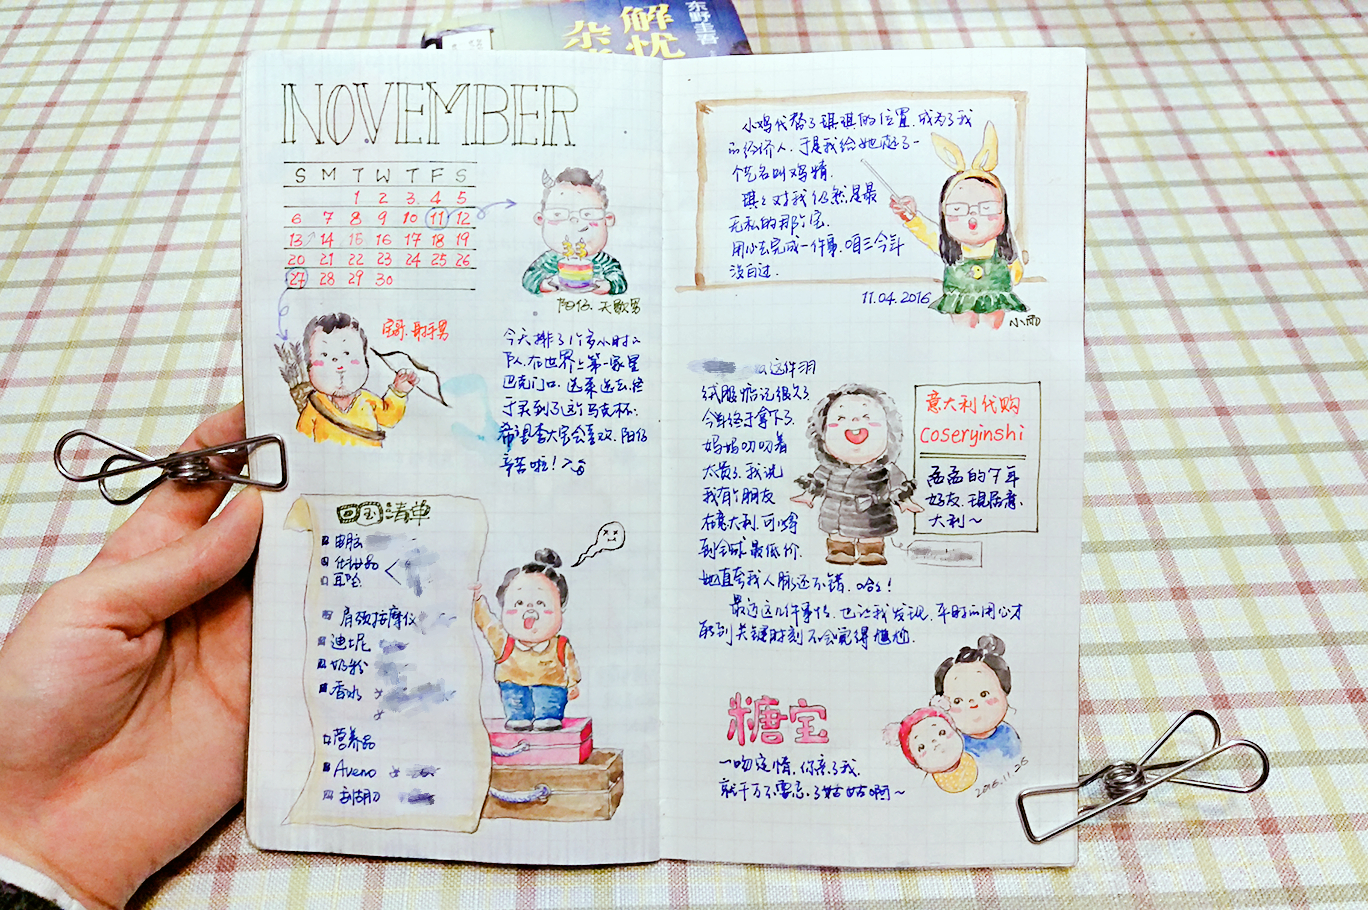 东野圭吾
解忧
杂
NOVEMBER
S M T W T F S
1 2 3 4 5
6 7 8 9 10 11 12
13 14 15 16 17 18 19
20 21 22 23 24 25 26
27 28 29 30
阳仔.天蝎男
射手男
今天排了1个多小时的
队.在世界上第一家星
巴克门口.选来选去.终
于买到了这个马克杯.
希望李大宝会喜欢.阳仔
辛苦啦!
回国清单
电脑
化妆品
耳
肩颈按摩仪
迪妮
奶粉
香水
营养品
Aveno
刮胡刀
小鸡代替了琪琪的位置.成为了我
的经纪人.于是我给她起了一
个艺名叫鸡精.
琪琪对我仍然是最
无私的那个宝.
用心去完成一件事.咱三今年
没白过.
11.04.2016
小雨
这件羽
绒服惦记很久了
今年终于拿下了.
妈妈叨叨着
太贵了.我说
我有个朋友
在意大利.可以拿
到全球最低价.
她直夸我人脉还不错.哈哈!
意大利代购
Coseryinshi
孟孟的7年
好友.现居意
大利~
最近这几件事情.也让我发现.平时的用心才
能到关键时刻不会觉得尴尬.
糖宝
一吻定情.你亲了我.
就千万不要忘了姑姑啊~
2016.11.26